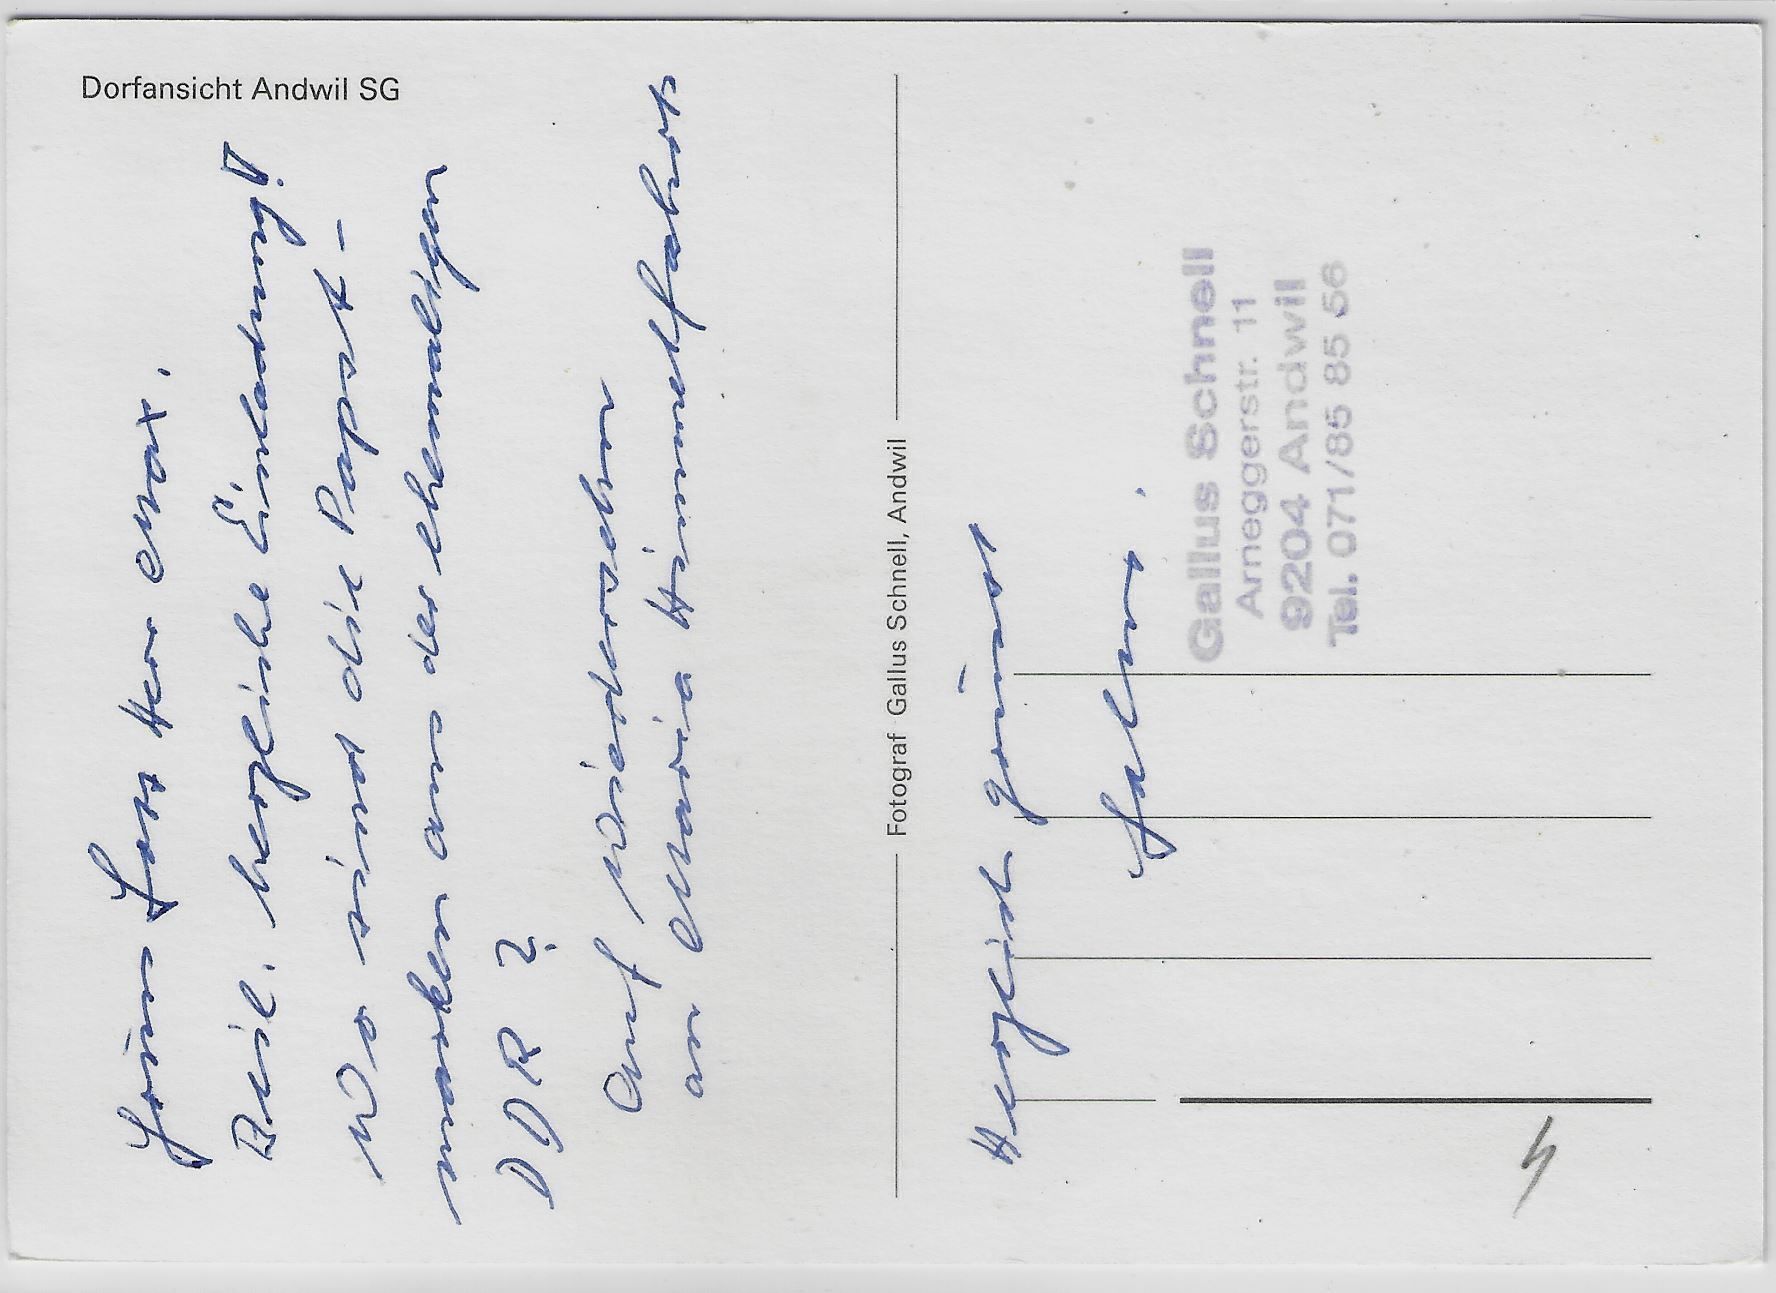 Dorfansicht Andwil SG
Grüss Gott Herr Max.
Beil. herzliche Einladung!
Wo sind die Papst-
marken aus der ehemaligen
DDR?
Auf Wiedersehen
an Maria Himmelfahrt
Fotograf Gallus Schnell, Andwil
Herzlich grüsst
Gallus Schnell
Arneggerstr. 11
9204 Andwil
Tel. 071/85 85 56